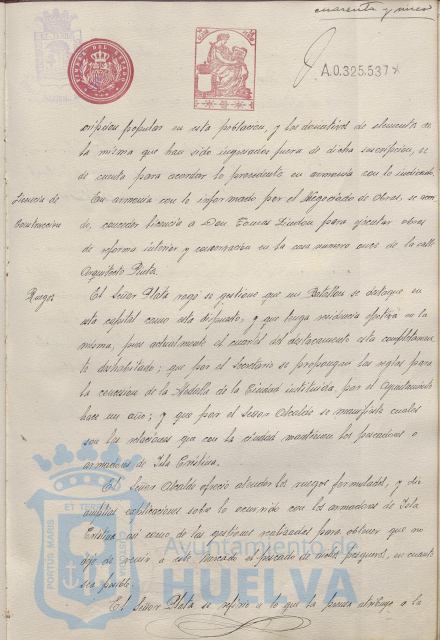 cuarenta y nueve
TIMBRE DEL ESTADO
A.0.325.537
cripcion popular en esta poblacion, y los donativos de elementos de
la misma que han sido ingresados fuera de dicha suscripcion, se
de cuenta para acordar lo procedente en armonia con lo indicado.
Licencia de
Construccion
En armonia con lo informado por el Negociado de Obras, se acor-
do, conceder licencia a Don Tomas para ejecutar obras
de reforma interior y conservacion en la casa numero once de la calle
Arquitecto Pinto.
Ruegos
El Señor Plata rogó se gestione que un Batallon se destaque en
esta capital como esta dispuesto, y que tenga residencia efectiva en la
misma, pues actualmente el cuartel del destacamento esta completamen-
te deshabitado; que por el Secretario se propongan las reglas para
la concesion de la Medalla de la Ciudad instituida por el Ayuntamiento
hace un año; y que por el Señor Alcalde se manifieste cuales
son las relaciones que con la ciudad mantienen los pescadores o
armadores de Isla Cristina.
El Señor Alcalde ofreció atender los ruegos formulados, y dio
amplias explicaciones sobre lo ocurrido con los armadores de Isla
Cristina asi como de las gestiones realizadas para obtener que no
deje de venir a este mercado el pescado de dichos pesqueros, en cuanto
sea posible.
El Señor Plata se refirio a lo que la prensa atribuye a la
PORTUS MARIS ET TERRAE CUSTODIA
Ayuntamiento de
HUELVA